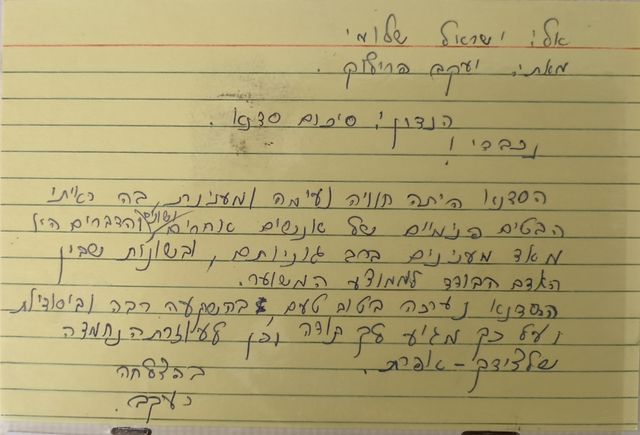 אל: ישראל שלומי
מאת: יעקב הרילוק.
הנדון: סיכום סדנא.
נכבדי!
הסדנא היתה חוויה נעימה ומענינת, בה ראיתי
הבטים פנימיים של אנשים אחרים ושונים והדברים היו
מאד מענינים ברב גוניותם, ובשונות שבין
האדם הבודד לממוצע המשוער.
הסדנא נערכה בטוב טעם, בהשקעה רבה וביסודיות
ועל כך מגיע לך תודה וכן לעוזרת הנחמדה
שלצידך - אפרת.
בהצלחה
יעקב.